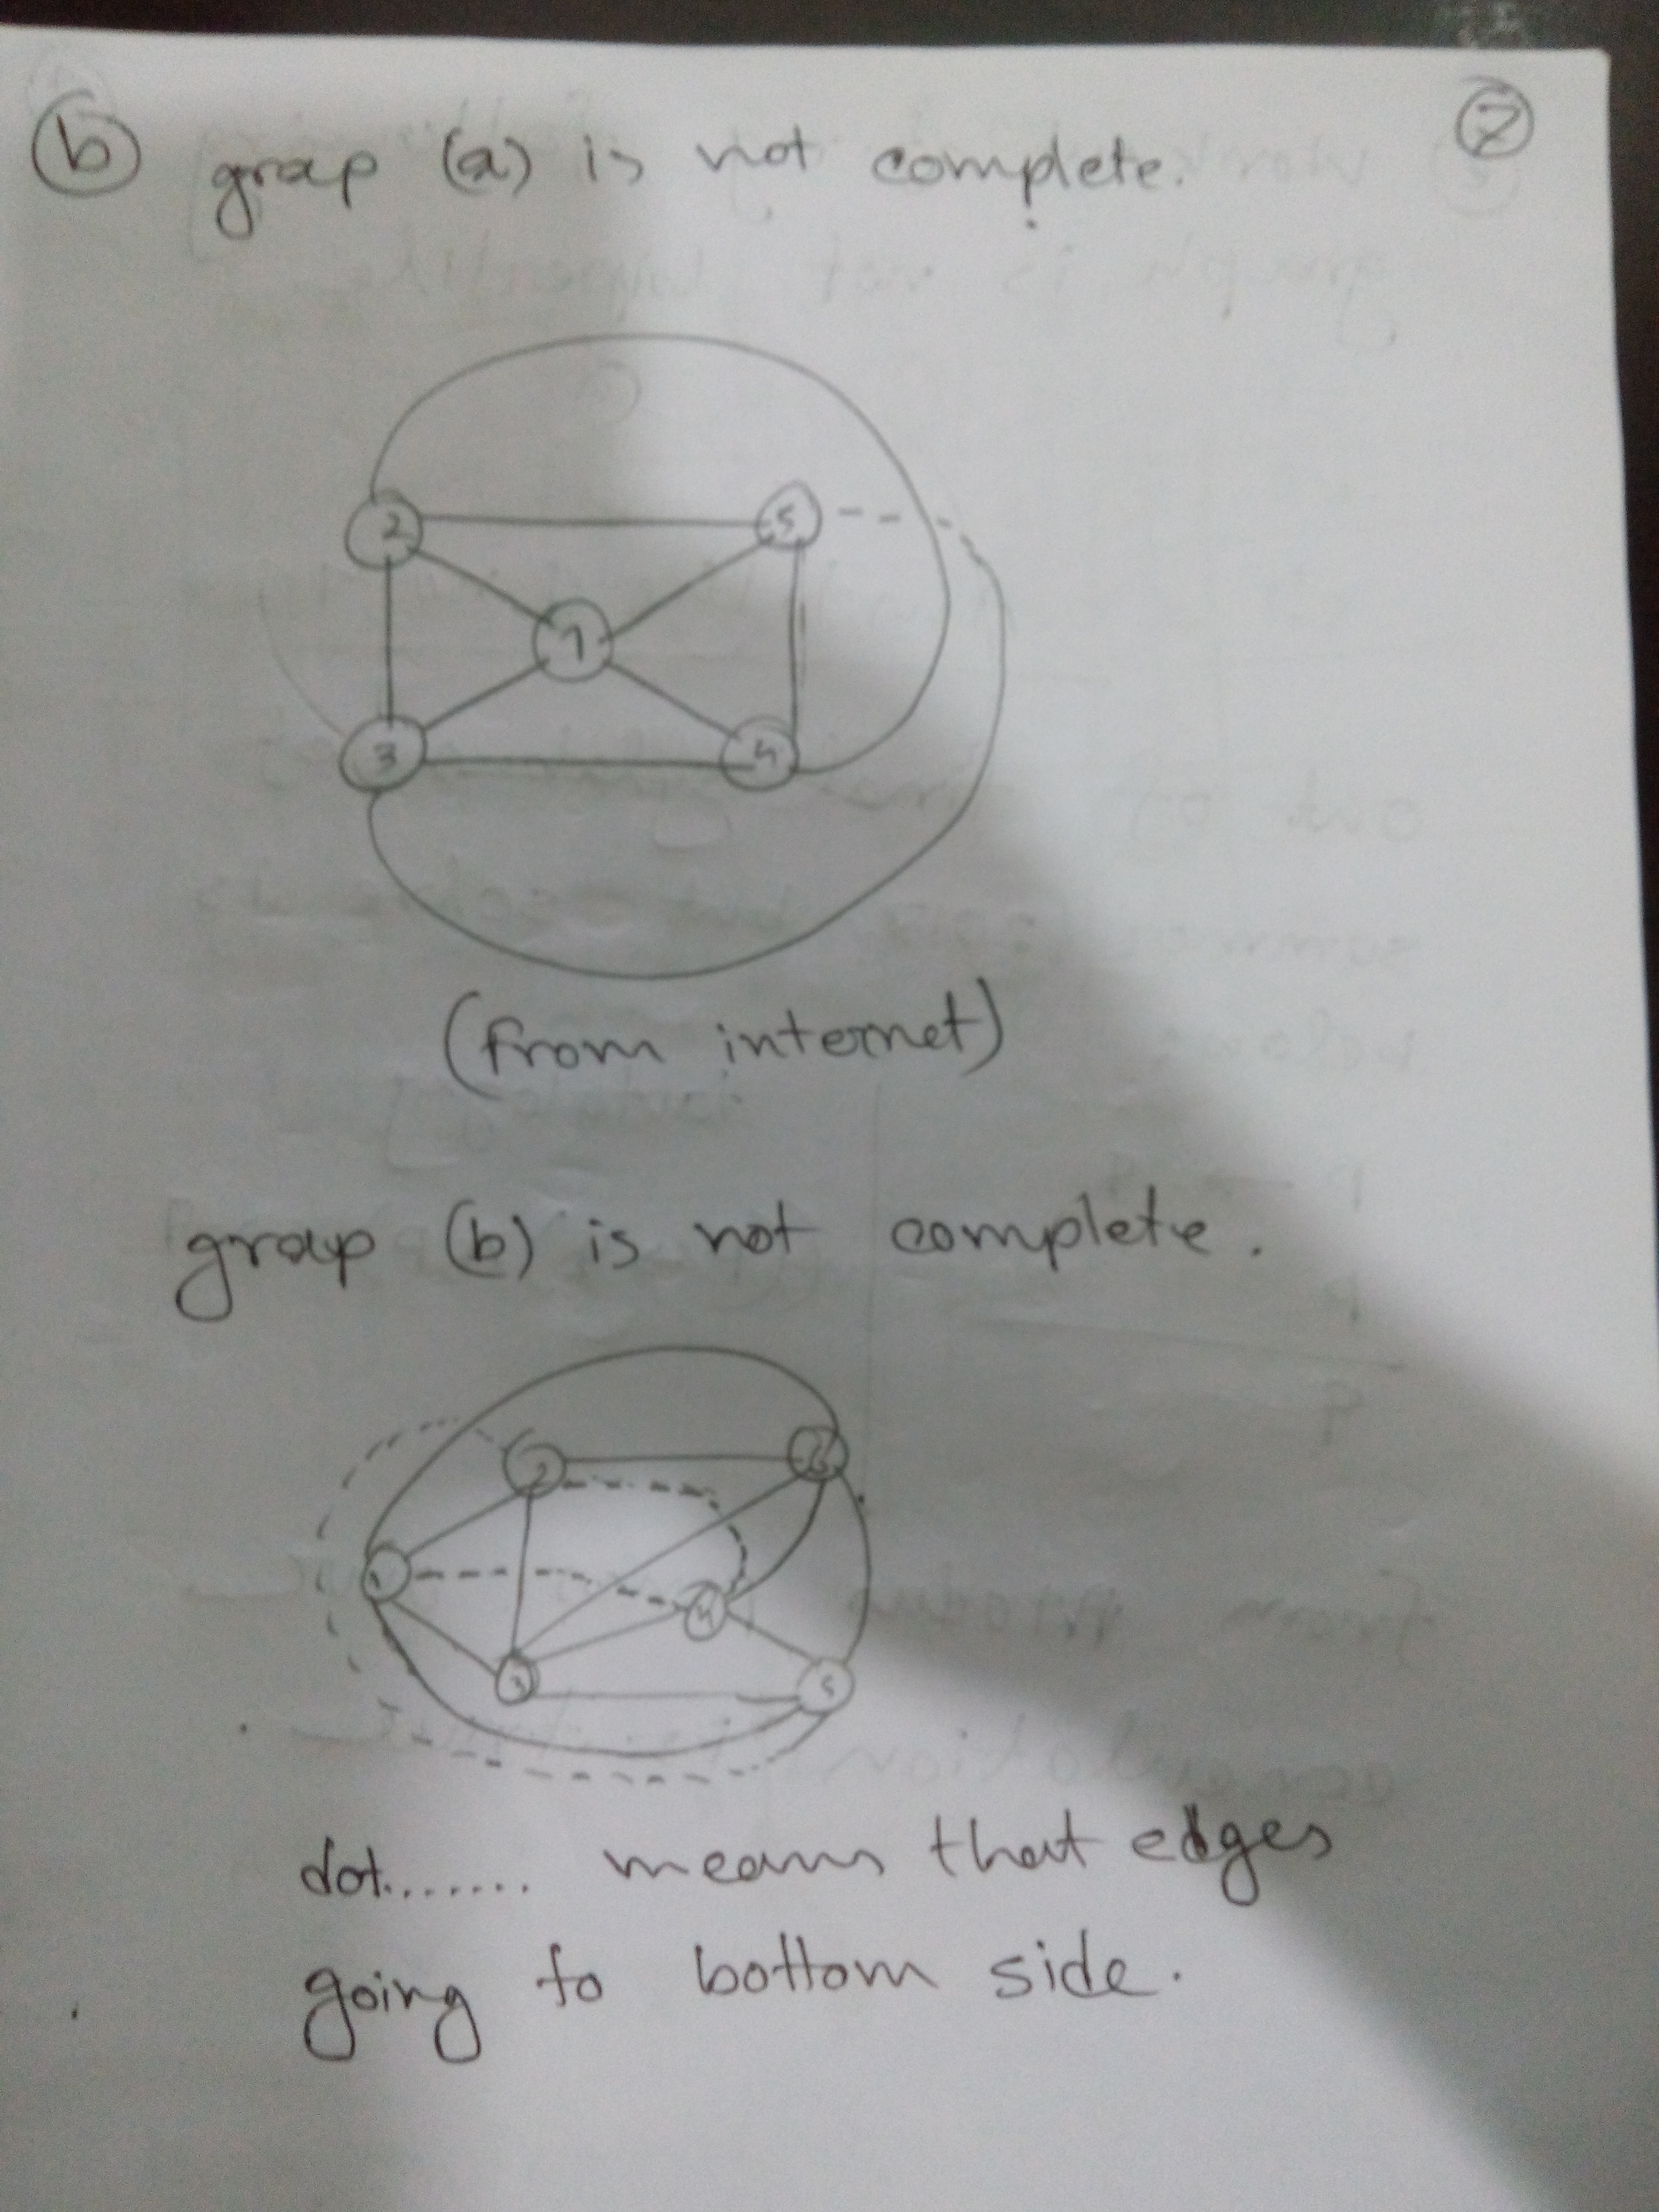 b grap (a) is not complete. 2
2 5
1
3 4
(from internet)
grap (b) is not complete.
2
1
4
3 5
dot........ means that edges
going to bottom side.